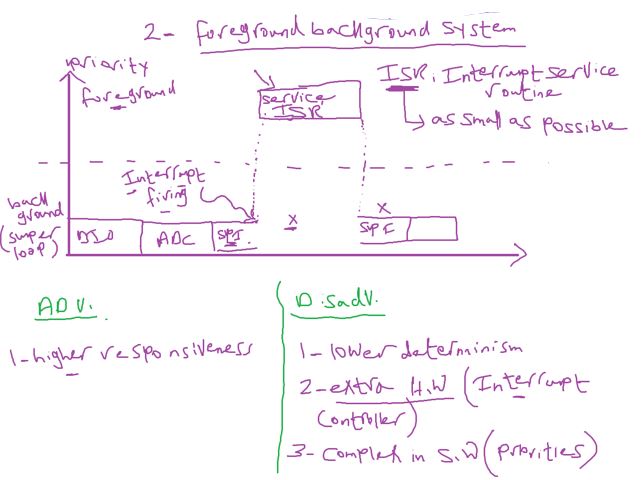 2- foreground background system
priority
foreground
service
ISR
ISR, Interrupt service
routine
as small as possible
Interrupt
firing
back
ground
(super
loop)
DIO
ADC
SPI
x
x
SPI
ADV.
1-higher responsiveness
Disadv.
1-lower determinism
2-extra H.W (Interrupt
Controller)
3- Complex in S.W (priorities)